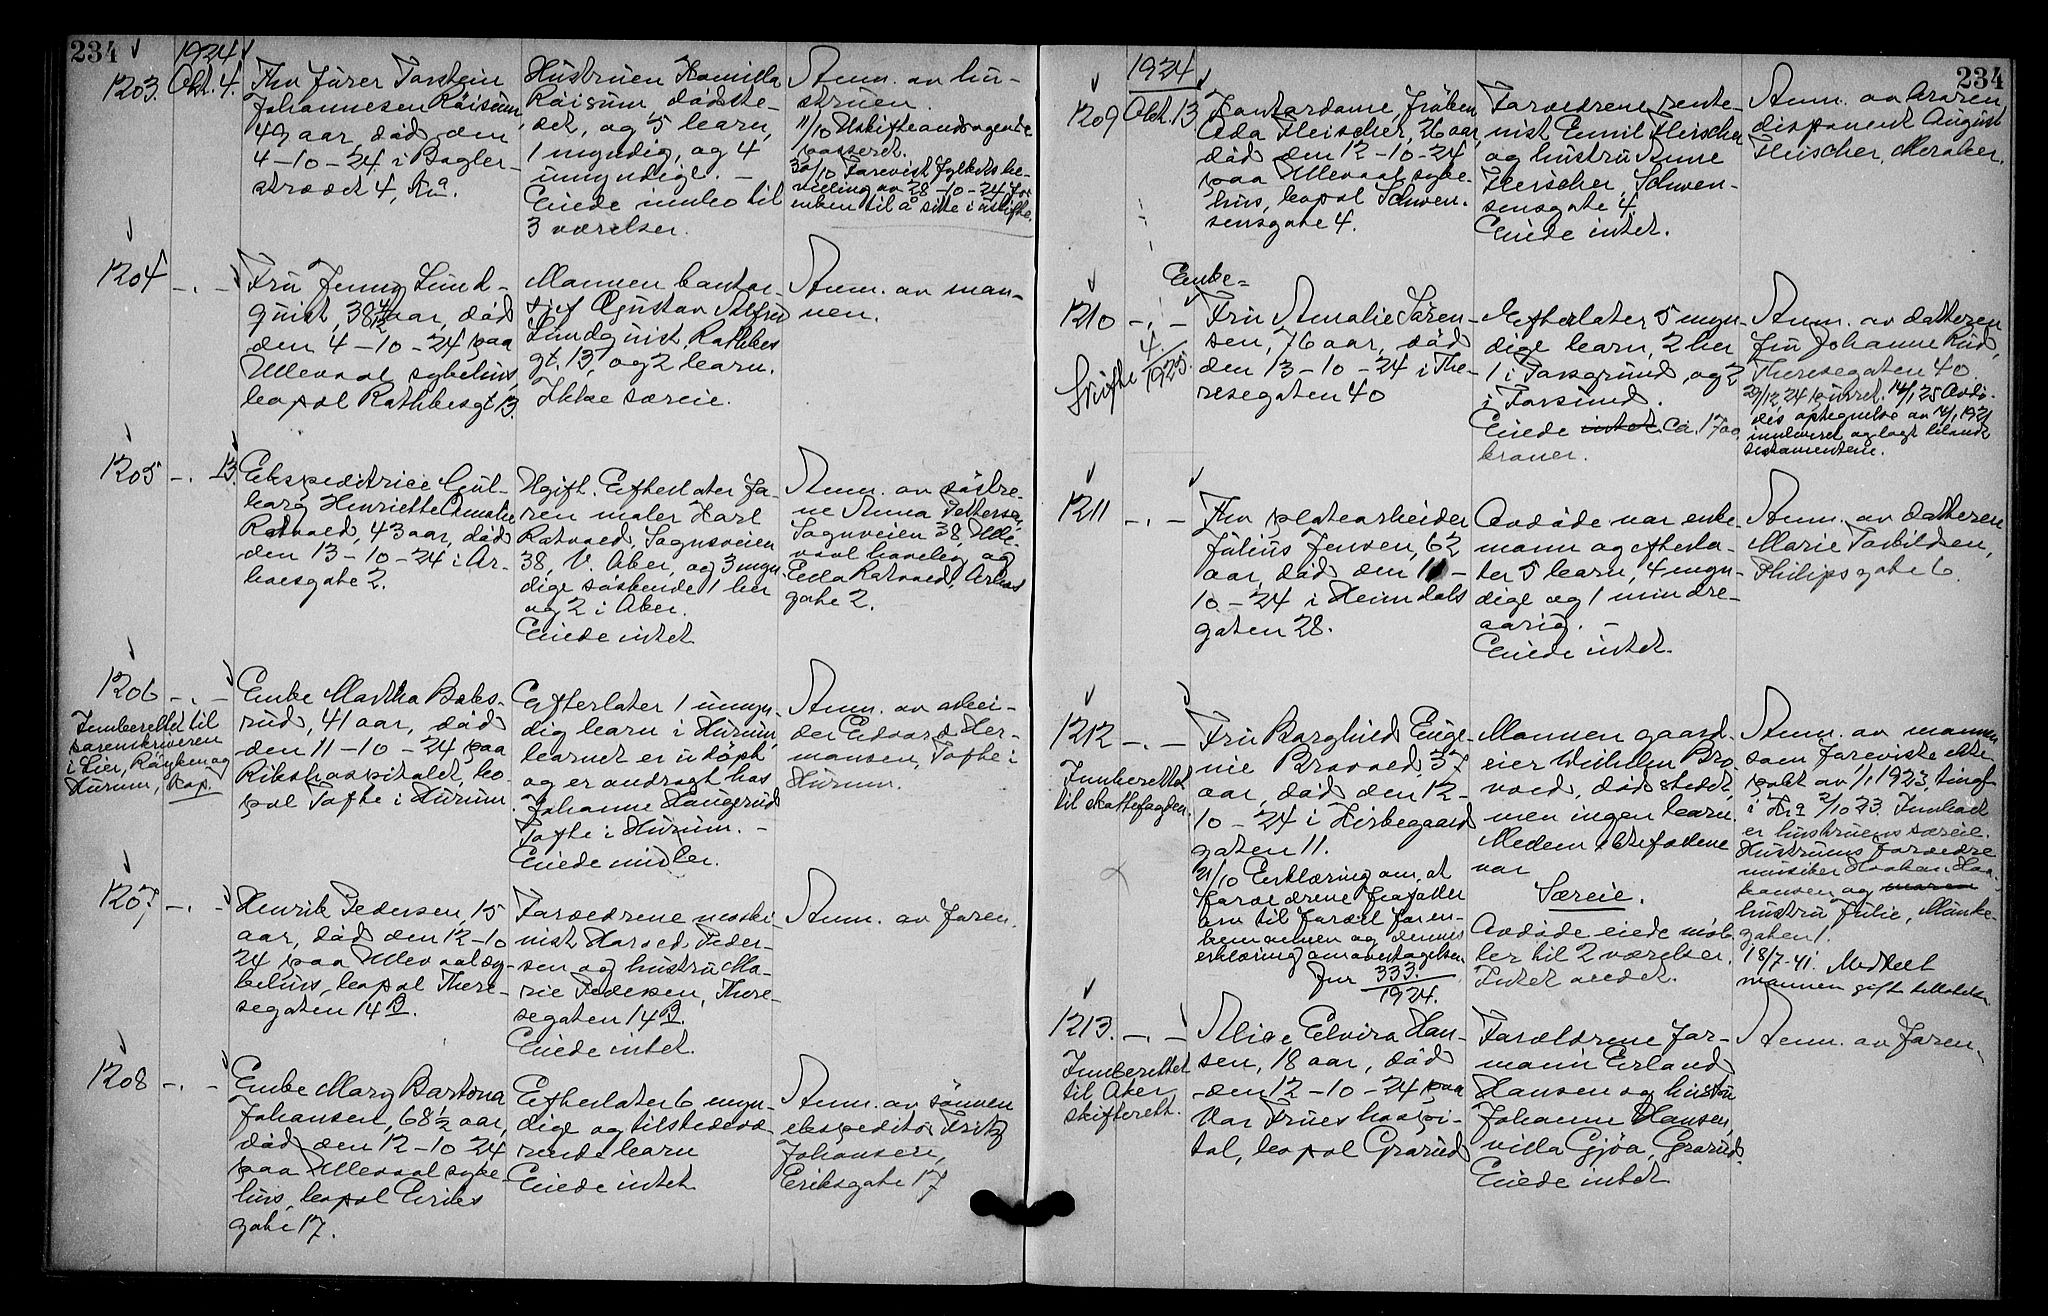 234
1924
1203. Okt. 4.
Fhv fürer Torstein
Johannesen Röisum,
49 aar, död den
4-10-24 i Bøgler-
strædet 4, Kra.
Hustruen Kamilla
Röisum, dødste-
det, og 5 barn,
1 myndig, og 4
umyndige. -
Eiede innbo til
3 værelser.
Anm. av hu-
struen.
11/10 Uskifteandragende
passeret.
30/10 Forevist Fylkets be-
villing av 28-10-24 for
enken til å sitte i uskifte.
1204 -.-
Fru Jenny Lund-
quist, 38 1/2 aar, död
den 4-10-24 paa
Ullevaal sykehus,
bopæl Rathkesgt. 13.
Mannen kontor-
sjef Gustav Alfred
Lundquist, Rathkes
gt. 13, og 2 barn.
Ikke særeie.
Anm. av man-
nen.
1205 -. 13.
Ekspeditrice Gul-
borg Henriette Amalie
Ratvold, 43 aar, död
den 13-10-24 i Ar-
boesgate 2.
Ugift. Efterlater fa-
ren maler Karl
Ratvold, Sognsveien
38, V. Aker, og 3 myn-
dige søskende 1 her
og 2 i Aker.
Eiede intet
Anm. av söstre-
ne Anna Pettersen,
Sognveien 38, Ulle-
vaal haveby, og
Ratvold, Arboes
gate 2.
1206 -.-
Innberettet til
sorenskriveren
i Lier, Röyken og
Hurum, Rap.
Enke Martha Boks-
rud, 41 aar, död
den 11-10-24 paa
Rikshospitalet, bo-
pæl Tofte i Hurum
Efterlater 1 umyn-
dig barn i Hurum,
barnet er udöpt
og er anbragt hos
Johanne Haugerud
Tofte i Hurum. -
Eiede midler.
Anm. av arbei-
der Edvard Her-
mansen, Tofte i
Hurum.
1207 -.-
Henrik Pedersen, 15
aar, död den 12-10
24 paa Ullevaal sy-
kehus, bopæl There-
segaten 14 B.
Forældrene maski-
nist Harald Peder-
sen og hustru Ma-
rie Pedersen, There-
segaten 14 B.
Eiede intet.
Anm. av faren.
1208 -.-
Enke Mary Bartona
Johansen, 68 1/2 aar,
död den 12-10 24
paa Ullevaal syke-
hus, bopæl Eriks
gate 17.
Efterlater 6 myn-
dige og tilstedevæ-
rende barn
Eiede intet
Anm. av sönnen
ekspeditör Fritz
Johansen,
Eriksgate 17
234
1924
1209 Okt. 13
Kontordame, fröken
Ada Fleischer, 26 aar,
död den 12-10-24
paa Ullevaal syke-
hus, bopæl Schwen-
sensgate 4.
Forældrene rente-
nist Emil Fleischer
og hustru Anne
Fleischer, Schwen-
sensgate 4.
Eiede intet.
Anm. av broren,
disponent August
Fleischer, Meraker.
1210 -.-
Skifte 4/1925.
Enke=
Fru Amalie Sören-
sen, 76 aar, död
den 13-10-24 i The-
resegaten 40
Efterlater 5 myn-
dige barn, 2 her
1 i Porsgrund, og 2
i Farsund.
Eiede intet. Ca. 1700
kroner.
Anm. av datteren
fru Johanne Rud,
Theresegaten 40.
29/12 24 purret. 14/1 25 Avdö-
des optegnelse av 14/1 1921
innleveret og lagt blandt
testamentene.
1211 -.-
Fhv platearbeider
Julius Jensen, 62
aar, död den 11-
10-24 i Heimdals
gaten 28.
Avdöde var enke-
mann og efterla-
ter 5 barn, 4 myn-
dige og 1 mindre-
aarig. -
Eiede intet.
Anm. av datteren
Marie Torbildsen,
Philipsgate 6.
1212 -.-
Innberettet
til skattefogden.
Fru Borghild Euge-
nie Brovold, 37
aar, död den 12-
10-24 i Kirkegaard
gaten 11.
21/10 Erklæring om at
forældrene frafaller
arv til fordel for en-
kemannen og dennes
erklæring om overtagelsen
Jnr 333./1924.
Mannen gaard-
eier Wilhelm Bro-
vold, dödstedet,
men ingen barn.
Mellem ektefollene
var
Særeie.
Avdöde eiede möb-
ler til 2 værelser.
Intet andet.
Anm. av mannen
som foreviste ekte-
pakt av 1/1 1923, tingl.
i Kra 2/10 23. Innboet
er hustruens særeie.
Hustruens forældre
musiker Haakon Haa-
konsen og
hustru Julie, Munke-
gaten 1.
18/7-41. Meddelt
mannen gifte tillatelse
1213. -.-
Innberettet
til Aker
skifterett.
Alice Elvira Han-
sen, 18 aar, död
den 12-10-24 paa
Vor Frues hospi-
tal, bopæl Grorud
Forældrene for-
mann Erland
Hansen og hustru
Johanne Hansen,
villa Gjöa, Grorud.
Eiede intet
Anm. av faren.